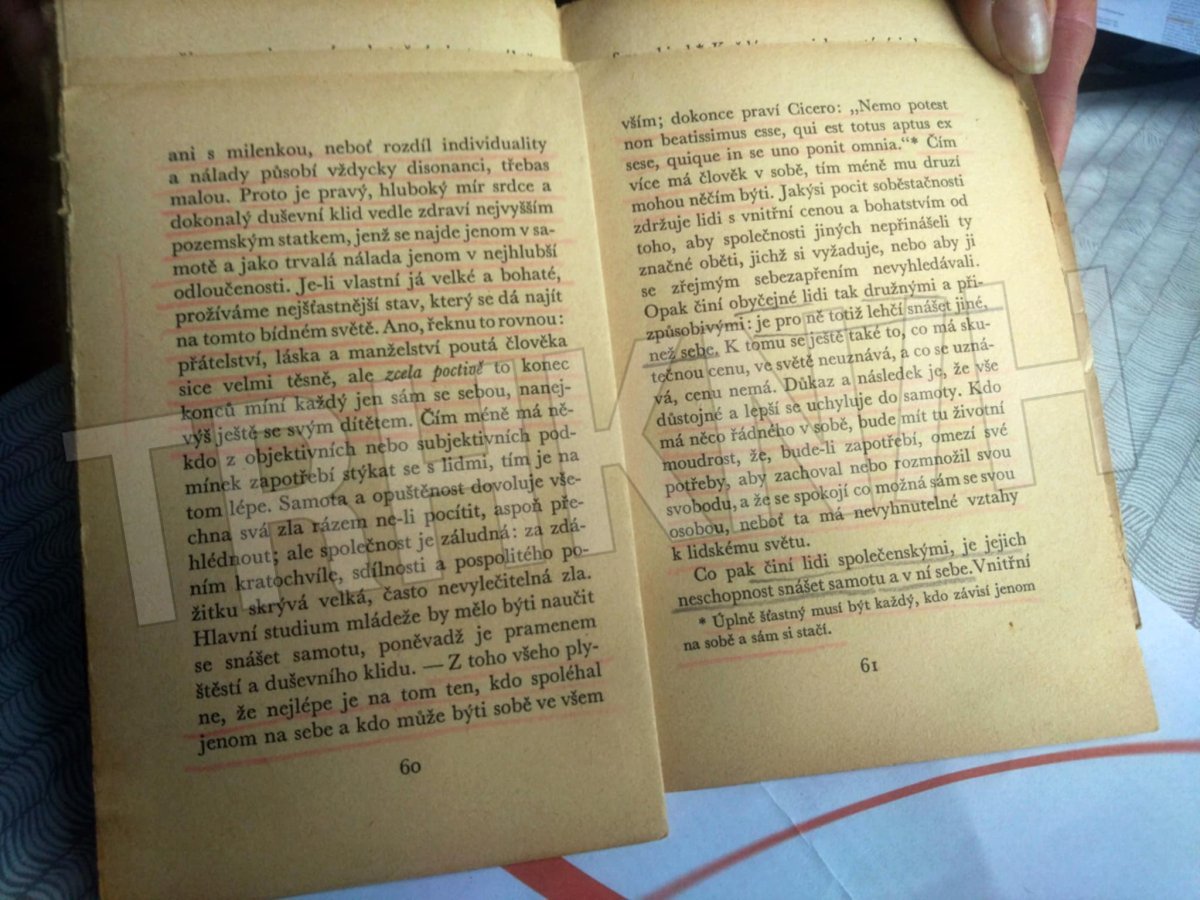 ani s milenkou, neboť rozdíl individuality
a nálady působí vždycky disonanci, třebas
malou. Proto je pravý, hluboký mír srdce a
dokonalý duševní klid vedle zdraví nejvyšším
pozemským statkem, jenž se najde jenom v sa-
motě a jako trvalá nálada jenom v nejhlubší
odloučenosti. Je-li vlastní já velké a bohaté,
prožíváme nejšťastnější stav, který se dá najít
na tomto bídném světě. Ano, řeknu to rovnou:
přátelství, láska a manželství poutá člověka
sice velmi těsně, ale zcela poctivě to konec
konců míní každý jen sám se sebou, nanej-
výš ještě se svým dítětem. Čím méně má ně-
kdo z objektivních nebo subjektivních pod-
mínek zapotřebí stýkat se s lidmi, tím je na
tom lépe. Samota a opuštěnost dovoluje vše-
chna svá zla rázem ne-li pocítit, aspoň pře-
hlédnout; ale společnost je záludná: za zdá-
ním kratochvíle, sdílnosti a pospolitého po-
žitku skrývá velká, často nevyléčitelná zla.
Hlavní studium mládeže by mělo býti naučit
se snášet samotu, poněvadž je pramenem
štěstí a duševního klidu. — Z toho všeho ply-
ne, že nejlépe je na tom ten, kdo spoléhal
jenom na sebe a kdo může býti sobě ve všem
60
vším; dokonce praví Cicero: „Nemo potest
non beatissimus esse, qui est totus aptus ex
sese, quique in se uno ponit omnia.“* Čím
více má člověk v sobě, tím méně mu druzí
mohou něčím býti. Jakýsi pocit soběstačnosti
zdržuje lidi s vnitřní cenou a bohatstvím od
toho, aby společnosti jiných nepřinášeli ty
značné oběti, jichž si vyžaduje, nebo aby ji
se zřejmým sebezapřením nevyhledávali.
Opak činí obyčejné lidi tak družnými a při-
způsobivými: je pro ně totiž lehčí snášet jiné,
než sebe. K tomu se ještě také to, co má sku-
tečnou cenu, ve světě neuznává, a co se uzná-
vá, cenu nemá. Důkaz a následek je, že vše
důstojné a lepší se uchyluje do samoty. Kdo
má něco řádného v sobě, bude mít tu životní
moudrost, že, bude-li zapotřebí, omezí své
potřeby, aby zachoval nebo rozmnožil svou
svobodu, a že se spokojí co možná sám se svou
osobou, neboť ta má nevyhnutelné vztahy
k lidskému světu.
Co pak činí lidi společenskými, je jejich
neschopnost snášet samotu a v ní sebe. Vnitřní
* Úplně šťastný musí být každý, kdo závisí jenom
na sobě a sám si stačí.
61